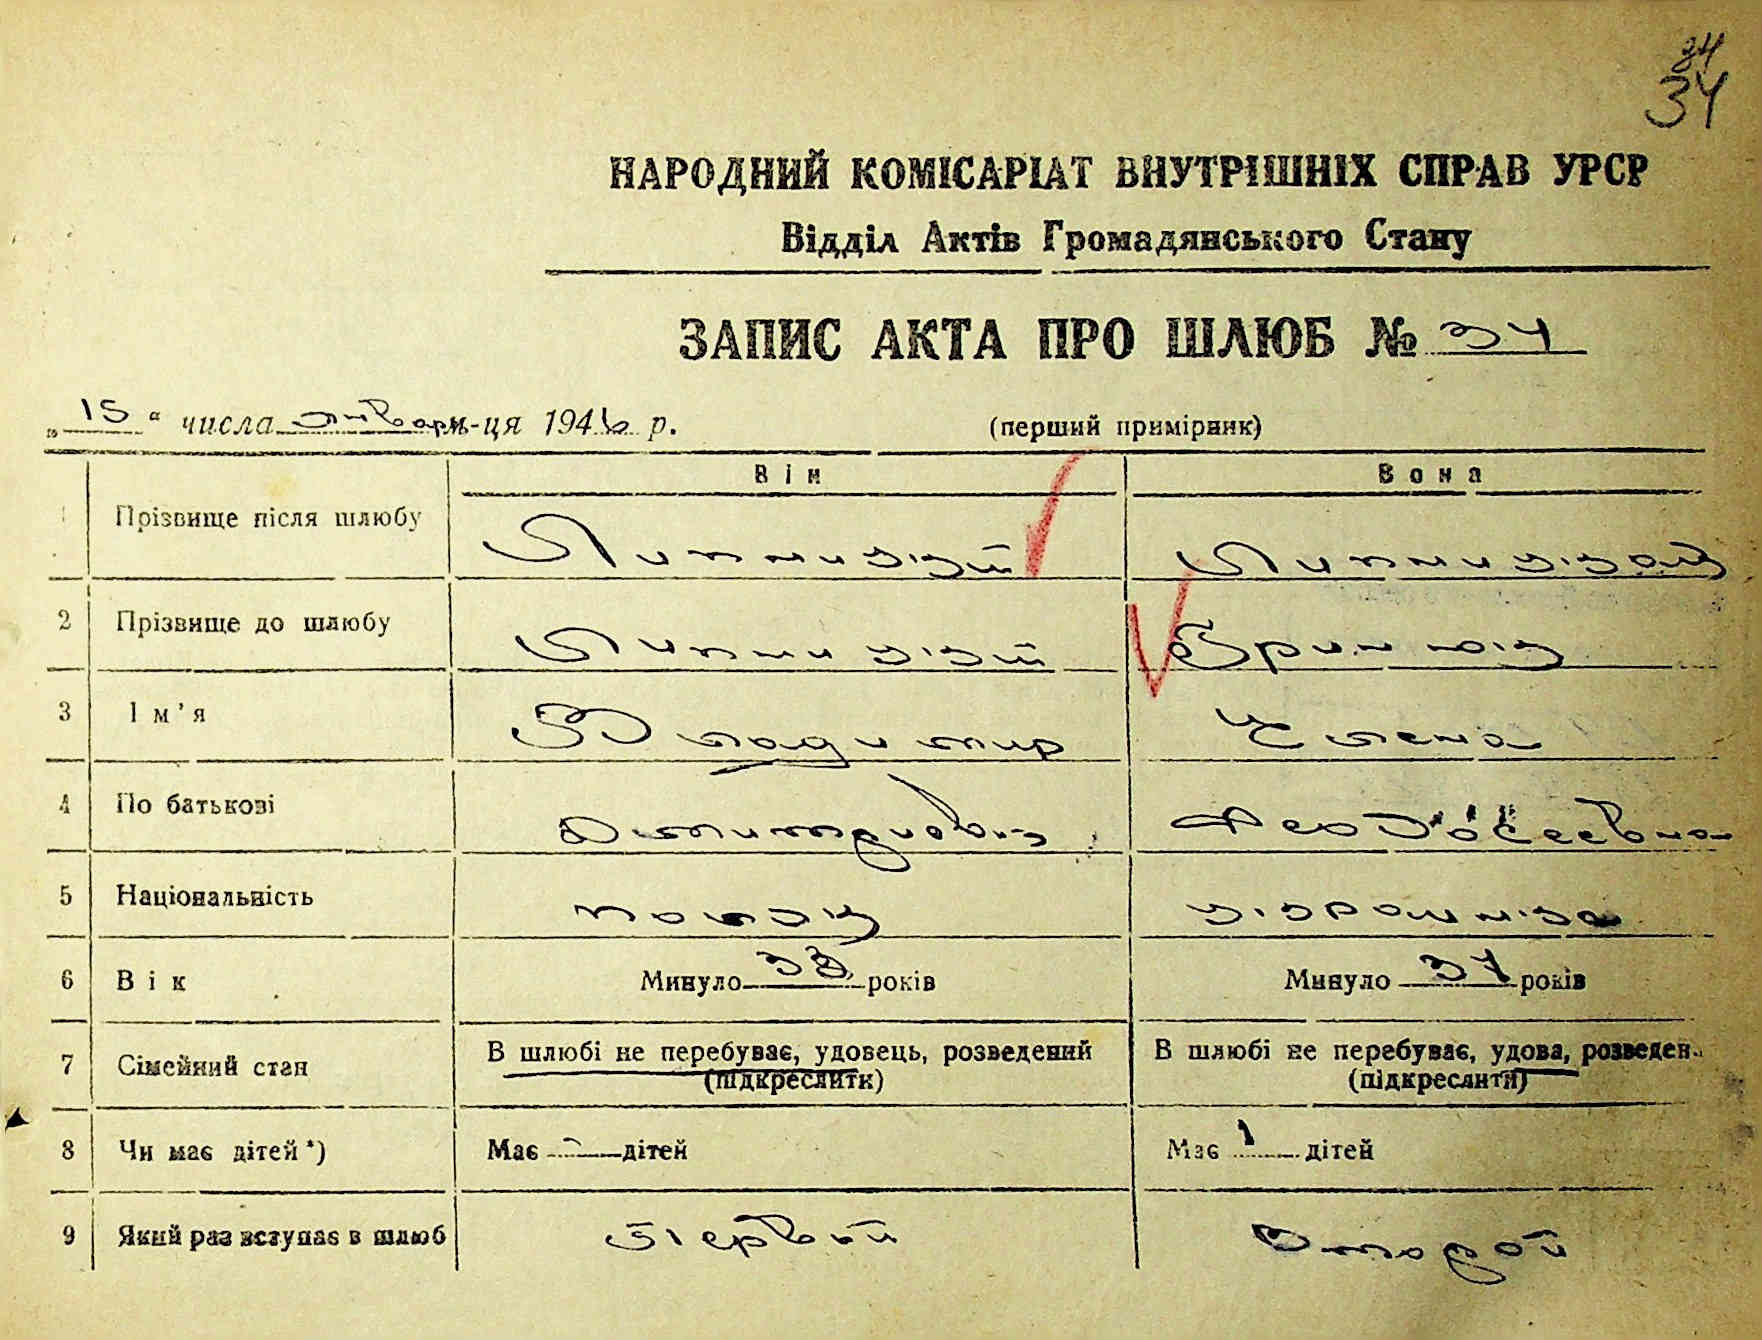 84
34
НАРОДНИЙ КОМІСАРІАТ ВНУТРІШНІХ СПРАВ УРСР
Відділ Актів Громадянського Стану
ЗАПИС АКТА ПРО ШЛЮБ № 34
„15“ числа января м-ця 1946 р. (перший примірник)
Він Вона
1 Прізвище після шлюбу
2 Прізвище до шлюбу
3 Ім’я Владимир Елена
4 По батькові Дмитриевич Феодосеевна
5 Національність поляк украинка
6 Вік Минуло 33 років Минуло 37 років
7 Сімейний стан В шлюбі не перебуває, удовець, розведений В шлюбі не перебуває, удова, розведен.
(підкреслити) (підкреслити)
8 Чи має дітей *) Має - дітей Має 1 дітей
9 Який раз вступає в шлюб Первый Второй